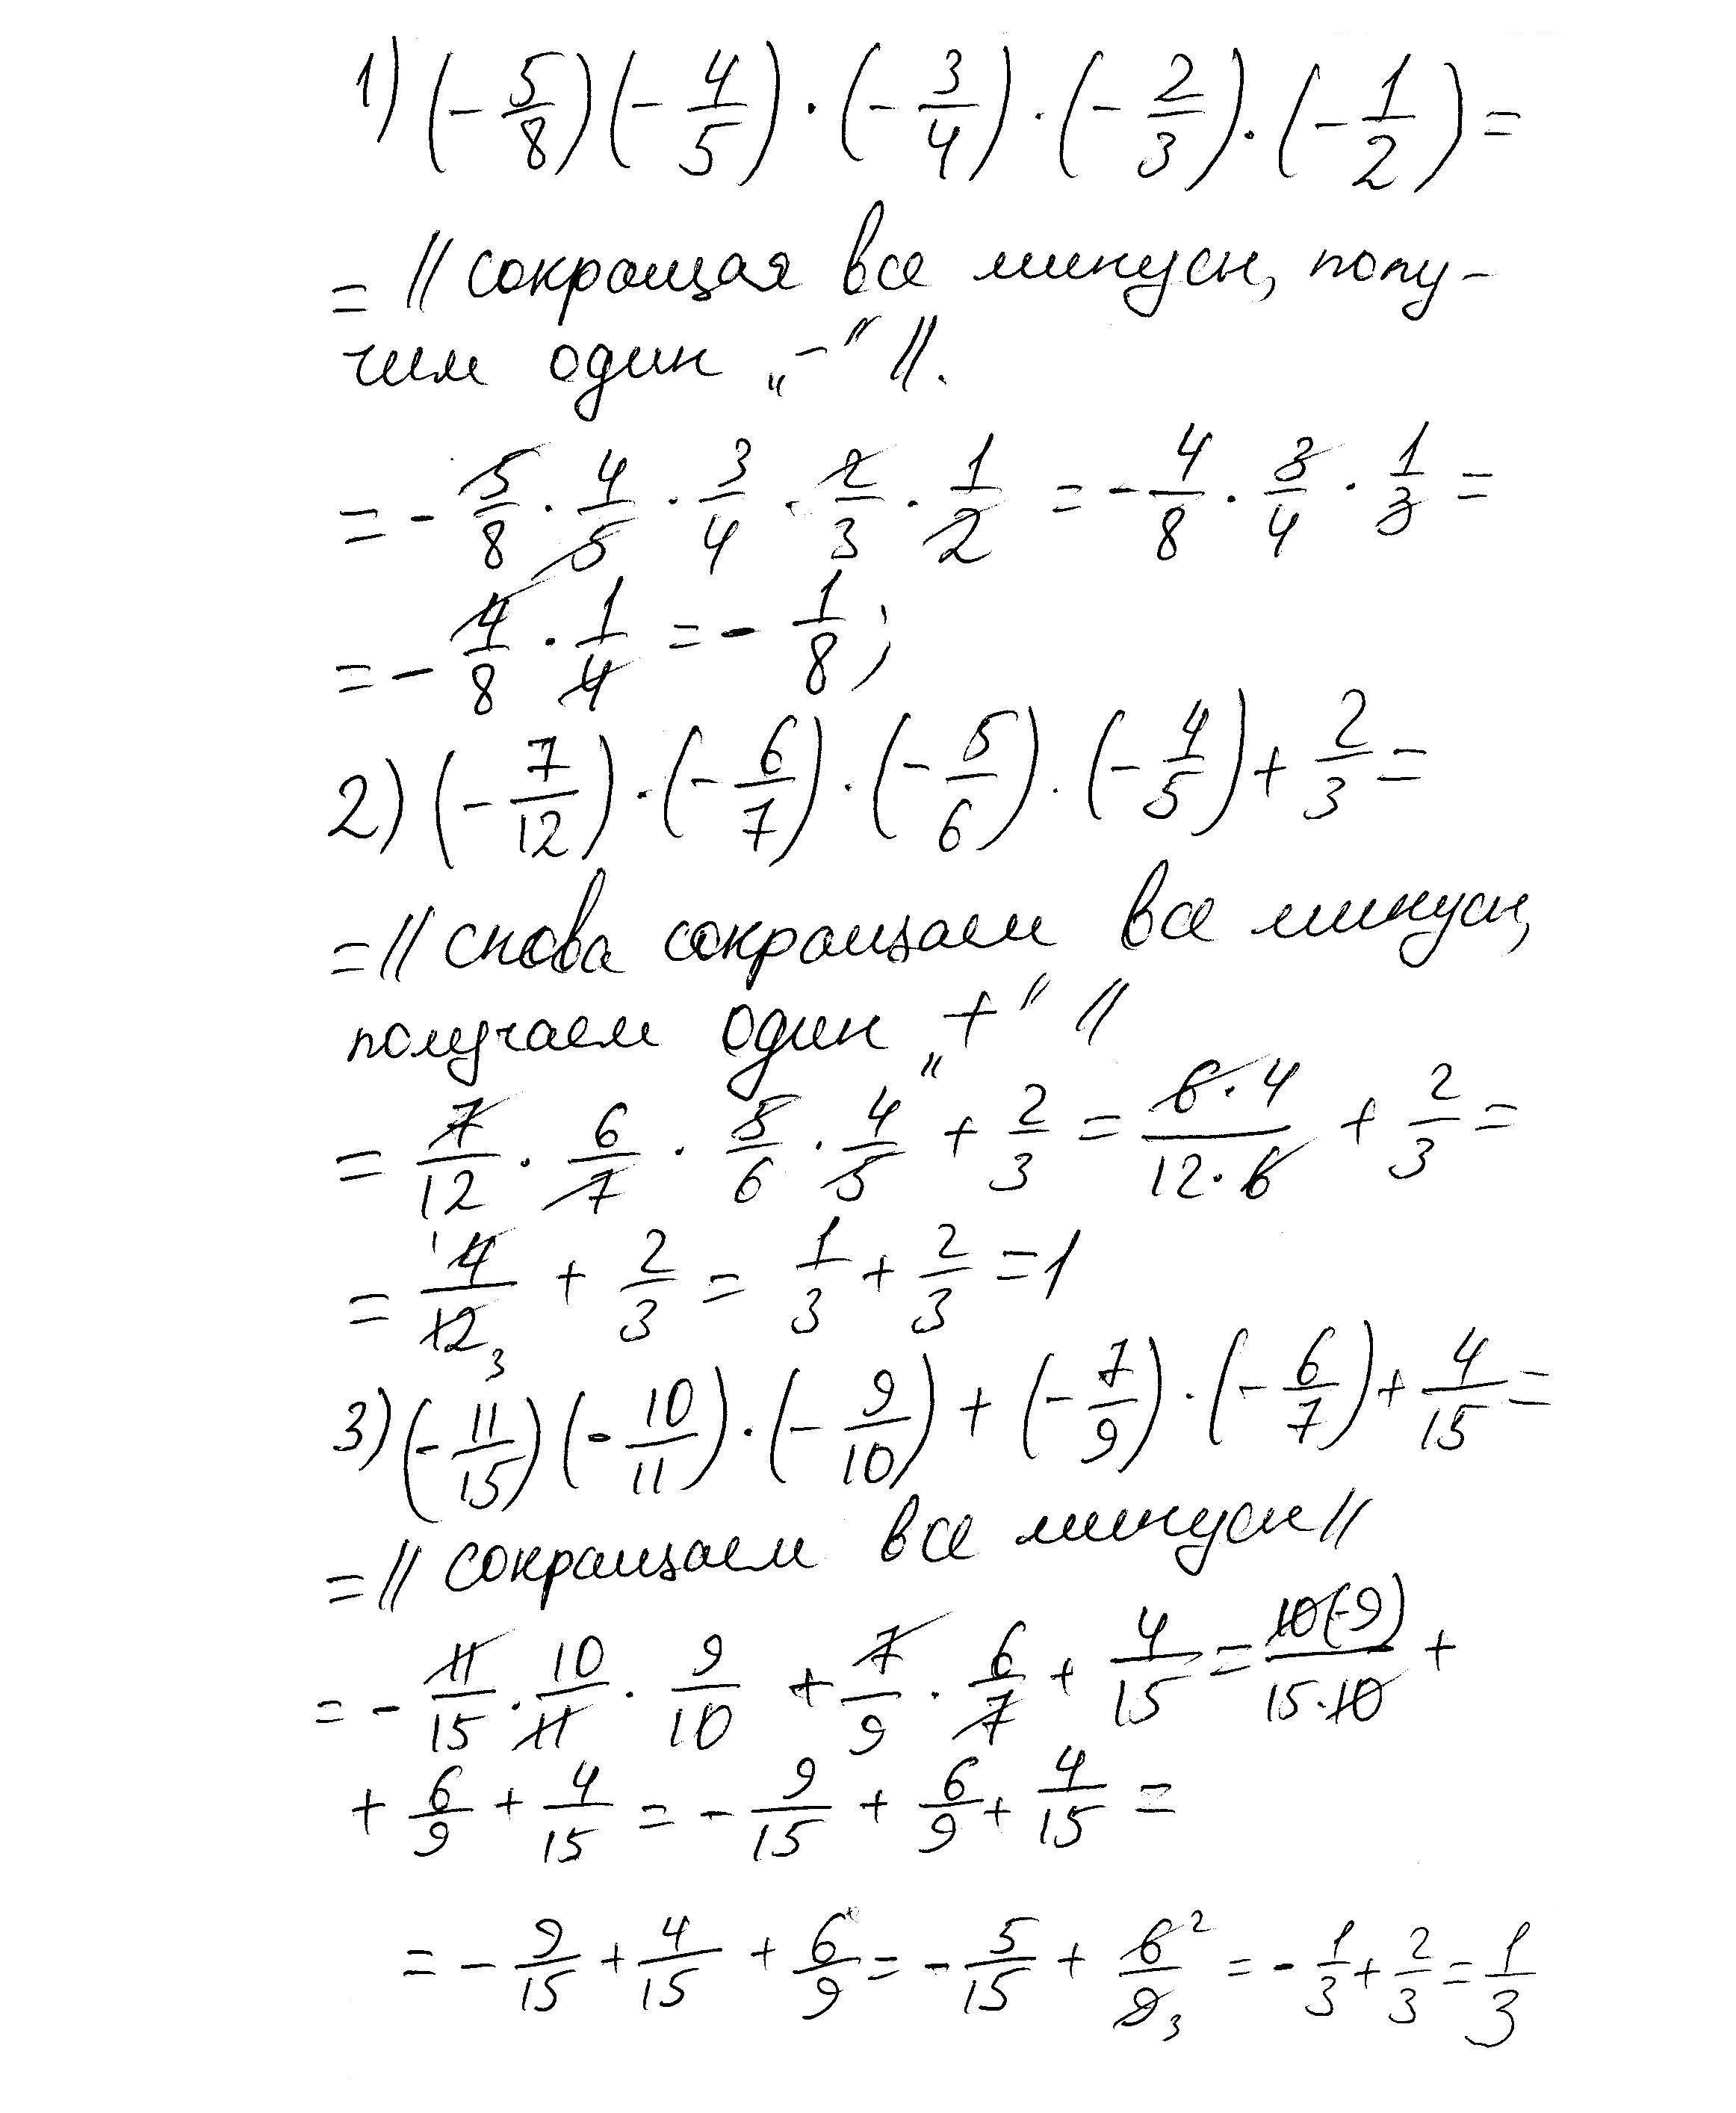 1) (-5/8)(-4/5)·(-3/4)·(-2/3)·(-1/2)=
= // сокращая все минусы, полу-
чим один „-" //.
= -5/8·4/5·3/4·2/3·1/2 = -4/8·3/4·1/3 =
= -4/8·1/4 = -1/8;
2) (-7/12)·(-6/7)·(-5/6)·(-4/5)+2/3=
= // снова сокращаем все минусы,
получаем один „+" //
= 7/12·6/7·5/6·4/5+2/3=6·4/12·6+2/3=
= 1 4/12 3 + 2/3 = 1/3+2/3=1
3) (-11/15)(-10/11)·(-9/10)+(-7/9)·(-6/7)+4/15=
= // сокращаем все минусы //
= -11/15·10/11·9/10+7/9·6/7+4/15=10(-9)/15·10+
+6/9+4/15=-9/15+6/9+4/15=
= -9/15+4/15+6/9=-5/15+6 2/9 3=-1/3+2/3=1/3